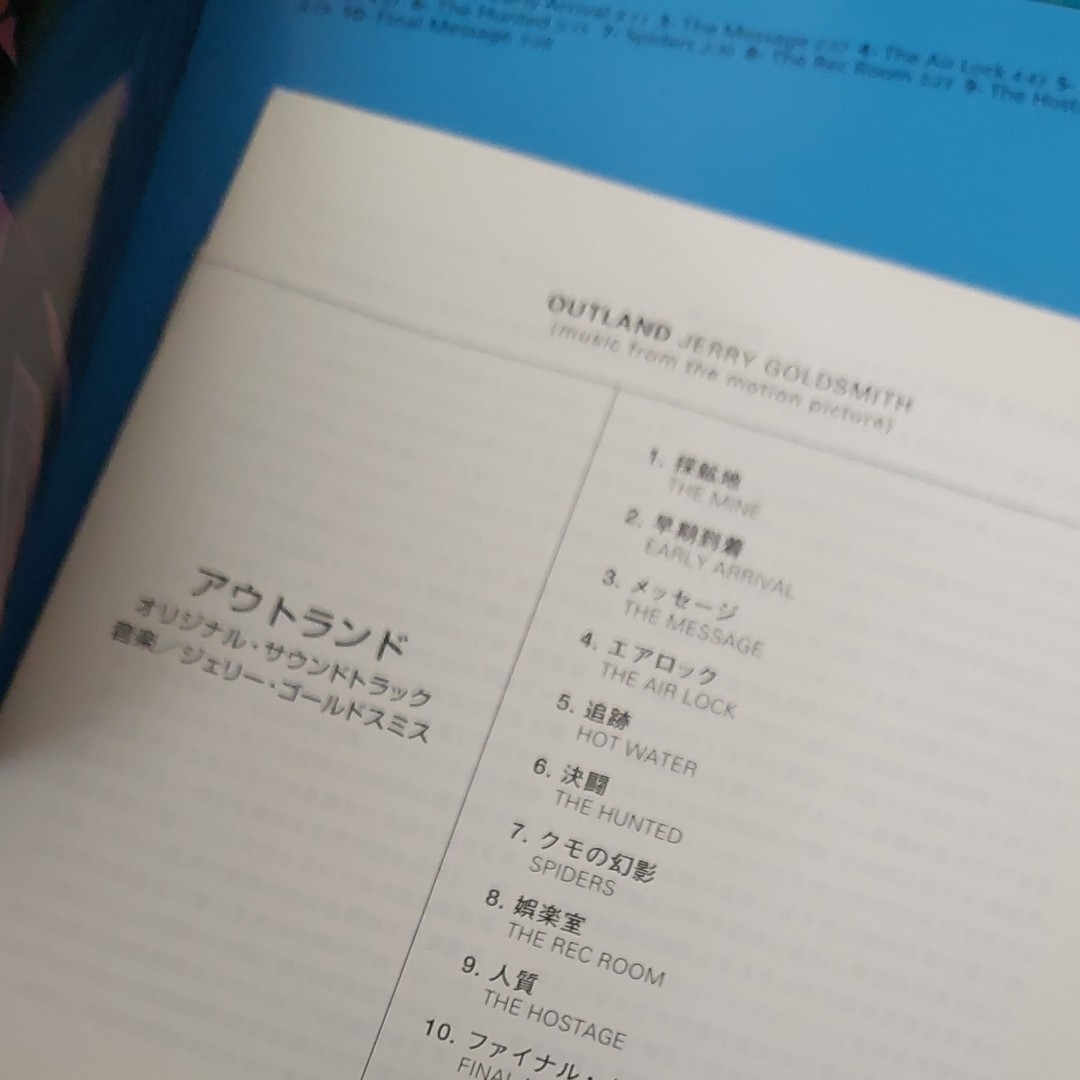 Early Arrival 3- The Message 4- The Air Lock 5-
6- The Hunted 7- Spiders 8- The Rec Room 9- The
10- Final Message
OUTLAND JERRY GOLDSMITH
(music from the motion picture)
アウトランド
オリジナル・サウンドトラック
音楽／ジェリー・ゴールドスミス
1. 採鉱地
THE MINE
2. 早期到着
EARLY ARRIVAL
3. メッセージ
THE MESSAGE
4. エアロック
THE AIR LOCK
5. 追跡
HOT WATER
6. 決闘
THE HUNTED
7. クモの幻影
SPIDERS
8. 娯楽室
THE REC ROOM
9. 人質
THE HOSTAGE
10. ファイナル・
FINAL